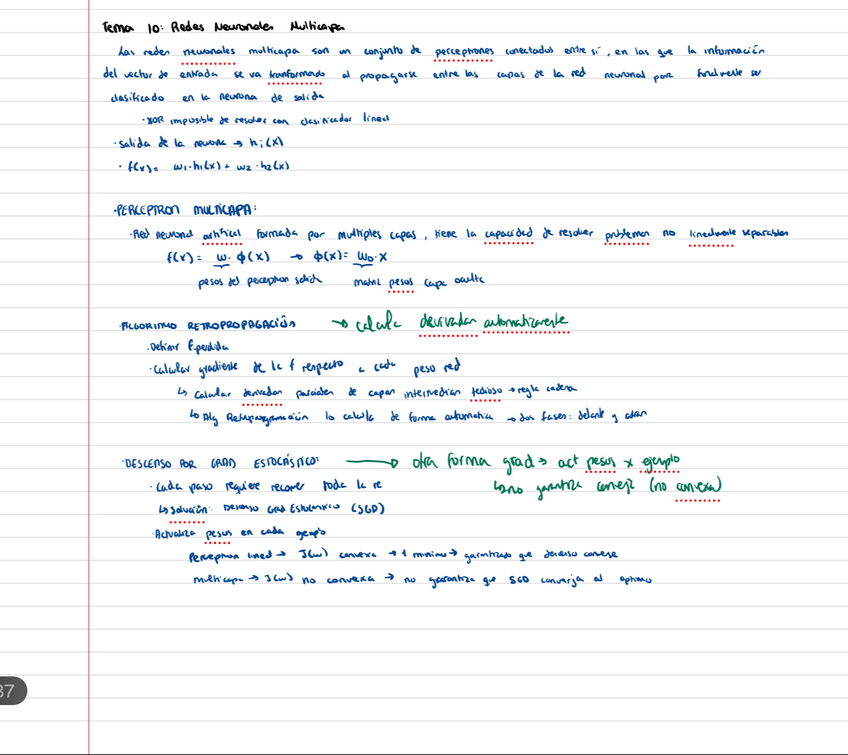 Tema 10: Redes Neuronales Multicapa
Las redes neuronales multicapa son un conjunto de perceptrones conectados entre sí, en las que la información
del vector de entrada se va transformando al propagarse entre las capas de la red neuronal para finalmente ser
clasificado en la neurona de salida
· XOR imposible de resolver con clasificador lineal
· Salida de la neurona → hi(x)
· f(x) = w1·h1(x) + w2·h2(x)
· PERCEPTRON MULTICAPA:
· Red neuronal artifical formada por multiples capas, tiene la capacidad de resolver problemas no linealmente separables
f(x) = w·ϕ(x) → ϕ(x) = w0·x
pesos del perceptron salida matriz pesos capa oculta
· ALGORITMO RETROPROPAGACIÓN → calcula derivadas automaticamente
· Definir f.perdida
· Calcular gradiente de la f respecto a cada peso red
↳ Calcular derivadas parciales de capas intermedias tedioso → regla cadena
↳ Alg Retropropagación lo calcula de forma automatica → dos fases: delante y atras
· DESCENSO POR GRAD ESTOCÁSTICO: → otra forma grad → act pesos x ejemplo
· Cada paso requiere recorrer toda la re ↳ no garantiza converja (no convexa)
↳ Solución: Descenso Grad Estocastico (SGD)
· Actualiza pesos en cada ejemplo
Perceptron lineal → J(w) convexa → 1 minimo → garantizado que descenso converge
multicapa → J(w) no convexa → no garantiza que SGD converja al optimo
37